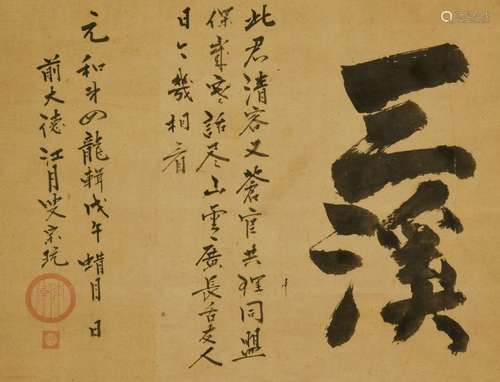 三溪
此君清容又蒼官共狎同盟
保歳寒話尽山雲廣長舌友人
日々幾相看
元和第四龍輯戊午蜡月 日
前大徳江月叟宗玩